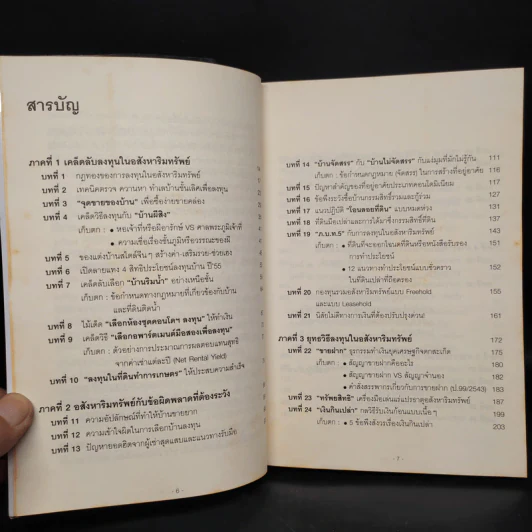 สารบัญ
ภาคที่ 1 เคล็ดลับลงทุนในอสังหาริมทรัพย์
บทที่ 1 กฎทองของการ ลงทุนในอสังหาริมทรัพย์
บทที่ 2 เทคนิคตรวจ ควานหา ทำเลบ้านชั้นเลิศเพื่อลงทุน
บทที่ 3 "จุดขายของบ้าน" เพื่อซื้อง่ายขายคล่อง
บทที่ 4 เคล็ดวิธีลงทุนกับ "บ้านผีสิง"
เก็บตก : • หอเจ้าที่หรือผีอารักษ์ VS ศาลพระภูมิเจ้าที่
• ความเชื่อเรื่องชั้นภูมิหรือวรรณะของผี
บทที่ 5 ของแต่งบ้านสไตล์จีนๆ สร้างค่า-เสริมรวย-ช่วยเฮง
บทที่ 6 เปิดลายแทง 4 สิทธิประโยชน์ลงทุนบ้าน ปี'55
บทที่ 7 เคล็ดลับเลือก "บ้านริมน้ำ" อย่างเหนือชั้น
เก็บตก : ข้อกำหนดทางกฎหมายที่เกี่ยวข้องกับบ้าน
และที่ดินติดน้ำ
บทที่ 8 ไม้เด็ด "เลือกห้องชุดคอนโดฯ ลงทุน" ให้ทำเงิน
บทที่ 9 เคล็ดวิธี "เลือกอพาร์ตเมนต์มือสองเพื่อลงทุน"
เก็บตก : ตัวอย่างการประมาณการผลตอบแทนสุทธิ
จากค่าเช่าแต่ละปี (Net Rental Yield)
บทที่ 10 "ลงทุนในที่ดินทำการเกษตร" ให้ประสบความสำเร็จ
ภาคที่ 2 อสังหาริมทรัพย์กับข้อผิดพลาดที่ต้องระวัง
บทที่ 11 ความอัปลักษณ์ที่ทำให้บ้านขายยาก
บทที่ 12 ความเข้าใจผิดในการเลือกบ้านลงทุน
บทที่ 13 ปัญหายอดฮิตจากผู้เช่าสุดแสบและแนวทางรับมือ
- 6 -
บทที่ 14 "บ้านจัดสรร" กับ "บ้านไม่จัดสรร" กับแง่มุมที่มักไม่รู้กัน 111
เก็บตก : ข้อกำหนดกฎหมาย (จัดสรร) ในการสร้างที่อยู่อาศัย 116
บทที่ 15 ปัญหาสำคัญของที่อยู่อาศัยประเภทคอนโดมิเนียม 117
บทที่ 16 ข้อพึงระวังซื้อบ้านกรรมสิทธิ์รวมและกู้ร่วม 127
บทที่ 17 แนวปฏิบัติ "โอนลอยที่ดิน" แบบหมดห่วง 131
บทที่ 18 ที่ดินมือเปล่าและการได้มาซึ่งกรรมสิทธิ์ที่ดิน 137
บทที่ 19 "ภ.บ.ท.5" กับการลงทุนในอสังหาริมทรัพย์ 143
เก็บตก : • ที่ดินที่จะออกโฉนดที่ดินหรือหนังสือรับรอง
การทำประโยชน์ 151
• 12 แนวทางทำประโยชน์แบบชั่วคราว
ในที่ดินที่ถือครอง 152
บทที่ 20 กองทุนรวมอสังหาริมทรัพย์แบบ Freehold
และแบบ Leasehold 157
บทที่ 21 นิติบุคคล
ภาคที่ 3 ยุทธวิธีลงทุนในอสังหาริมทรัพย์ 172
บทที่ 22 "ขายฝาก" ธุรกรรมทำเงินยุคเศรษฐกิจตกสะเก็ด 175
เก็บตก : • สัญญาขายฝากคืออะไร
• สัญญาขายฝาก VS สัญญาจำนอง 182
• คำสั่งสรรพากรเกี่ยวกับการขายฝาก (ป.99/2543) 183
บทที่ 23 "ทรัพย์อิงสิทธิ" 186
บทที่ 24 "เงินกินเปล่า" 193
เก็บตก : • 5 ข้อพึงสังวรเรื่องเงินกินเปล่า 203
- 7 -